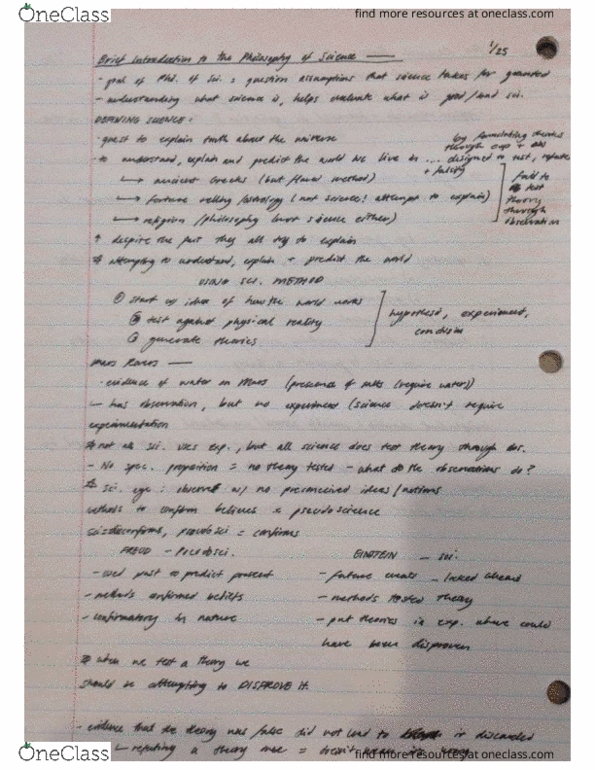 OneClass
find more resources at oneclass.com
1/25
Brief Introduction to the Philosophy of Science
- goal of Phil. of Sci. = question assumptions that science takes for granted
- understanding what science is, helps evaluate what is good/bad sci.
DEFINING SCIENCE:
- quest to explain truth about the universe
by formulating theories
through exp + obs
- to understand, explain and predict the world we live in ... designed to test, refute
+ falsify
↳ ancient Greeks (but flawed method)
↳ fortune telling/astrology (not science! attempt to explain)
↳ religion/philosophy (not science either)
fail to
test
theory
through
observation
despite the fact they all try to explain
attempting to understand, explain + predict the world
USING SCI. METHOD
① start w/ idea of how the world works
② test against physical reality
③ generate theories
hypothesis, experiment,
conclusion
Mars Rovers
- evidence of water on Mars (presence of salts (require water))
has observation, but no experiment (science doesn't require
experimentation
not all sci. uses exp., but all science does test theory through obs.
- No spec. proposition = no theory tested - what do the observations do?
sci. eye: observe w/ no preconceived ideas/notions
methods to confirm believes = pseudoscience
sci=disconfirms, pseudosci = confirms
FREUD - Pseudosci.
EINSTEIN - sci.
- used past to predict present
- future events - looked ahead
- methods confirmed beliefs
- methods tested theory
- confirmatory in nature
- put theories in exp. where could
have been disproven
when we test a theory we
should be attempting to DISPROVE it.
- evidence that the theory was false did not lead to it discarded
↳ refuting a theory
OneClass
find more resources at oneclass.com